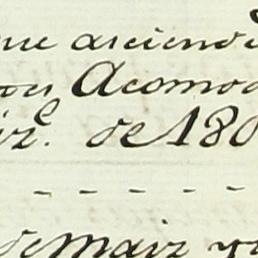 ue asciend
Acomod
iz.e de 180
de Maiz y